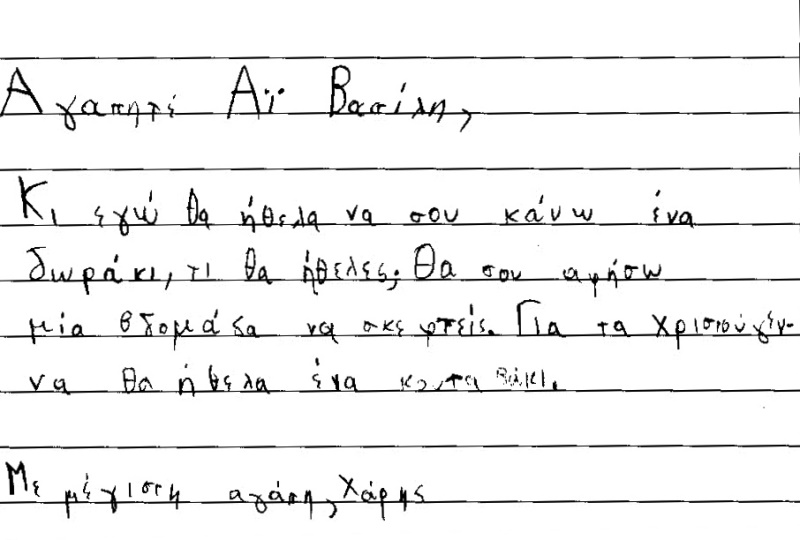 Αγαπητέ Αϊ Βασίλη,
Κι εγώ θα ήθελα να σου κάνω ένα
δωράκι, τι θα ήθελες; Θα σου αφήσω
μία βδομάδα να σκεφτείς. Για τα Χριστούγεν-
να θα ήθελα ένα κουταβάκι.
Με μέγιστη αγάπη, Χάρης